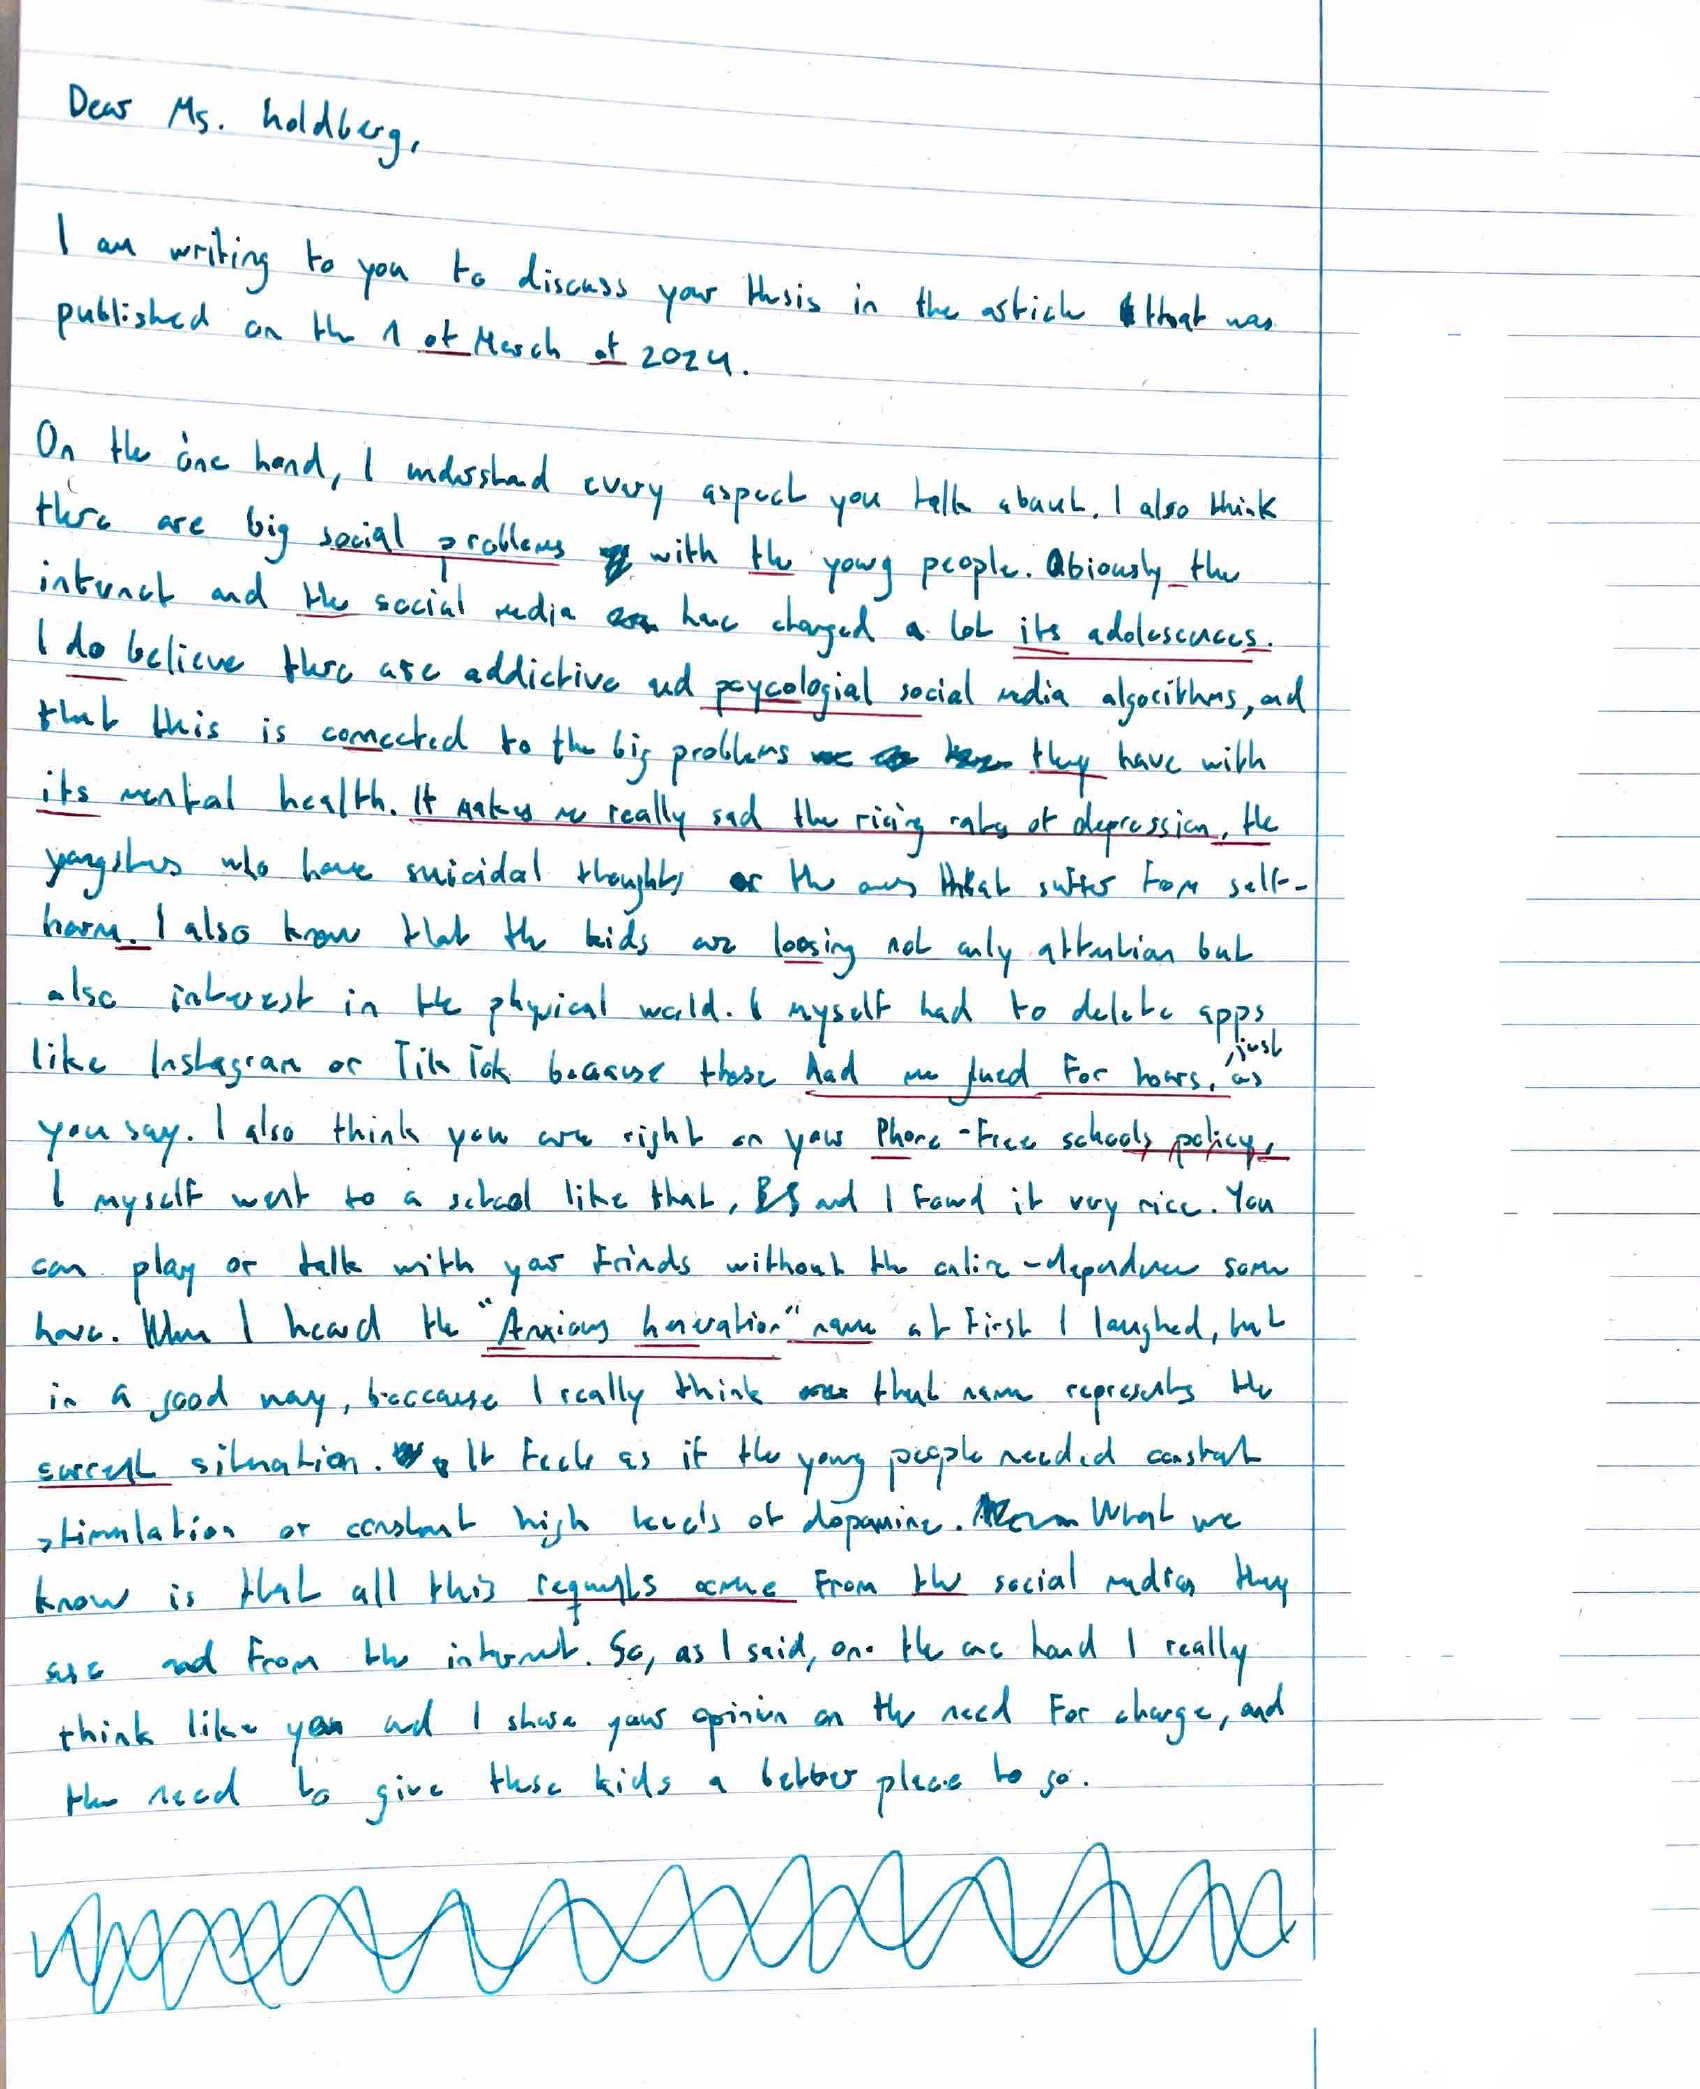 Dear Ms. Goldberg,
I am writing to you to discuss your thesis in the article that was
published on the 1 of March of 2024.
On the one hand, I understand every aspect you talk about. I also think
there are big social problems with the young people. Obiously the
internet and the social media have changed a lot its adolescences.
I do believe there are addictive and psycologial social media algorithms, and
that this is connected to the big problems they have with
its mental health. It makes me really sad the rising rates of depression, the
yongsters who have suicidal thoughts or the ones that suffer from self-
harm. I also know that the kids are loosing not only attention but
also interest in the physical world. I myself had to delete apps
like Instagram or TikTok because those had me glued for hours, just as
you say. I also think you are right on your Phone-Free schools policy,
I myself went to a school like that, and I found it very nice. You
can play or talk with your frinds without the online-dependence some
have. When I heard the "Anxious Generation" name at first I laughed, but
in a good way, beccause I really think that name represents the
current situation. It feels as if the young people needed constant
stimulation or constant high levels of dopamine. What we
know is that all this come from the social medias they
use and from the internet. So, as I said, on the one hand I really
think like you and I share your opinion on the need for change, and
the need to give these kids a better place to go.